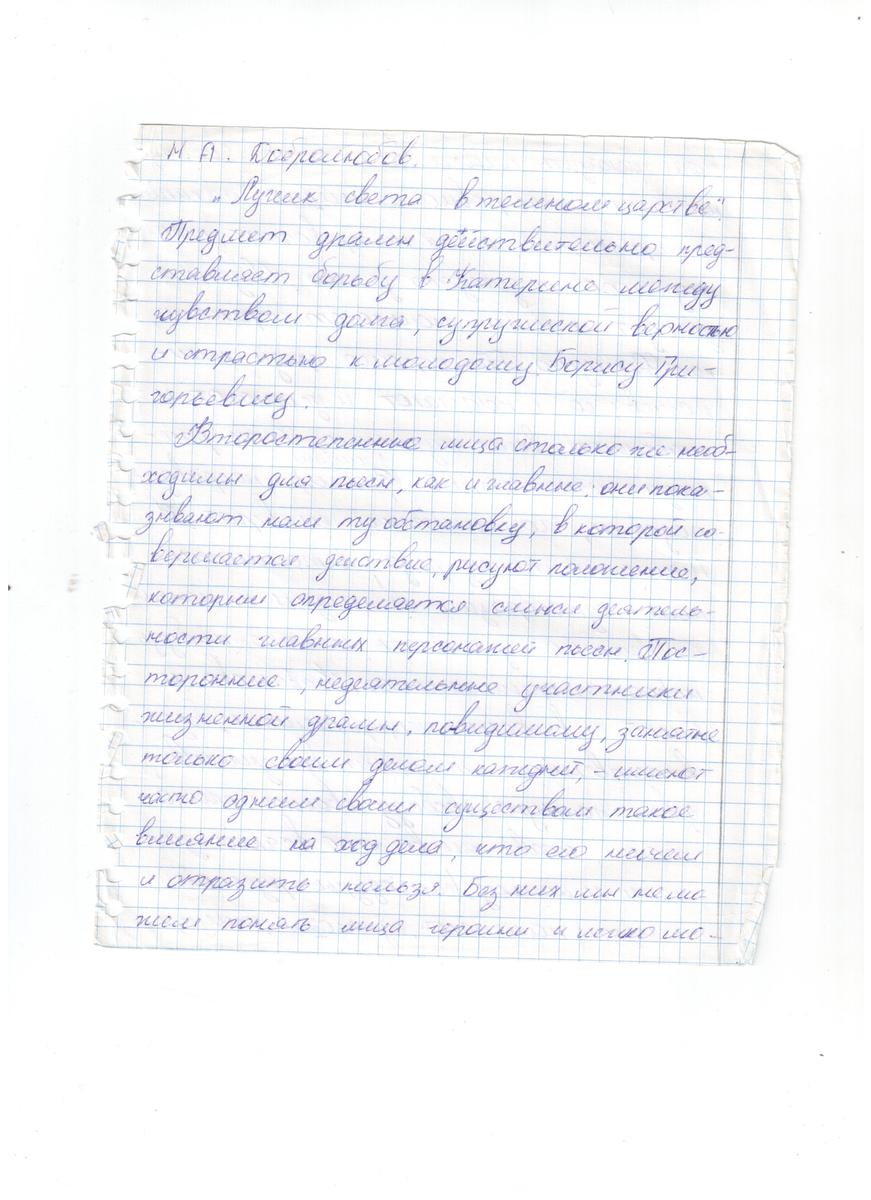 Н. А. Добролюбов.
„Лучик света в темном царстве".
Предмет драмы действительно пред-
ставляет борьбу в Катерине между
чувством долга, супружеской верностью
и страстью к молодому Борису Гри-
горьевичу.
Второстепенные лица столько же необ-
ходимы для пьесы, как и главные: они пока-
зывают нам ту обстановку, в которой со-
вершается действие, рисуют положение,
которым определяется смысл деятель-
ности главных персонажей пьесы. Пос-
торонние, недеятельные участники
жизненной драмы, повидимому, занятые
только своим делом каждый, – имеют
часто одним своим существом такое
влияние на ход дела, что его ничем
и отразить нельзя. Без них мы не мо
жем понять лица героини и легко мо-